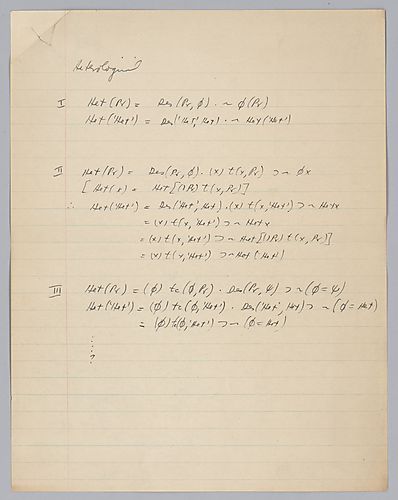 Heterological
I Het(Pr) = Des(Pr, ϕ) . ~ ϕ(Pr)
Het('Het') = Des('Het', Het) . ~ Het('Het')
II Het(Pr) = Des(Pr, ϕ) . (x) t(x, Pr) ⊃ ~ ϕx
[ Het(x) = Het [(ηPr) t(x, Pr)]
∴ Het('Het') = Des('Het', Het) . (x) t(x, 'Het') ⊃ ~ Het x
= (x) t(x, 'Het') ⊃ ~ Het x
= (x) t(x, 'Het') ⊃ ~ Het [(ηPr) t(x, Pr)]
= (x) t(x, 'Het') ⊃ ~ Het ('Het')
III Het(Pr) = (ϕ) tc(ϕ, Pr) . Des(Pr, ψ) ⊃ ~ (ϕ = ψ)
Het('Het') = (ϕ) tc(ϕ, 'Het') . Des('Het', Het) ⊃ ~ (ϕ = Het)
= (ϕ) tc(ϕ, 'Het') ⊃ ~ (ϕ = Het)
?